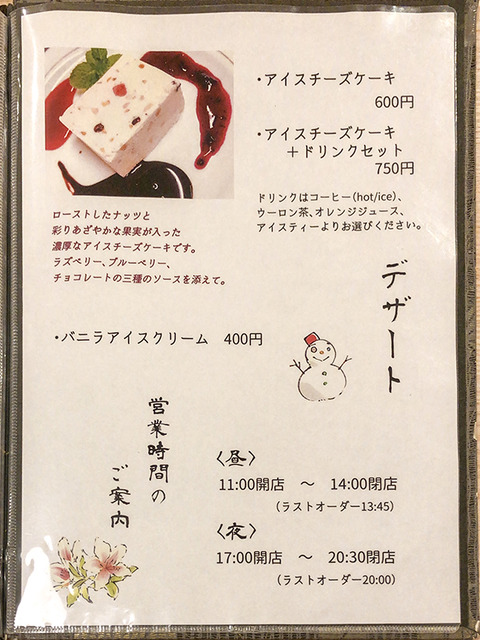 ・アイスチーズケーキ
600円
・アイスチーズケーキ
＋ドリンクセット
750円
ドリンクはコーヒー(hot/ice)、
ウーロン茶、オレンジジュース、
アイスティーよりお選びください。
ローストしたナッツと
彩りあざやかな果実が入った
濃厚なアイスチーズケーキです。
ラズベリー、ブルーベリー、
チョコレートの三種のソースを添えて。
デザート
・バニラアイスクリーム 400円
営業時間の
ご案内
〈昼〉
11:00開店 ～ 14:00閉店
(ラストオーダー13:45)
〈夜〉
17:00開店 ～ 20:30閉店
(ラストオーダー20:00)